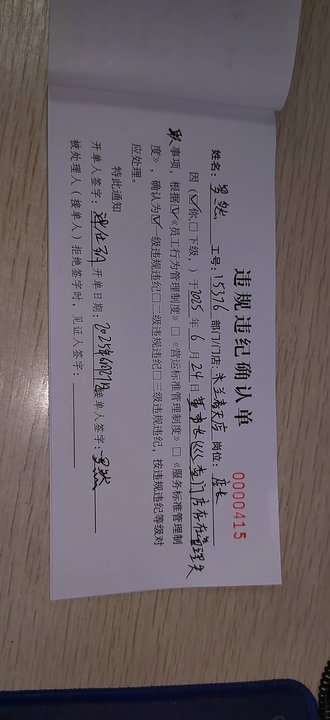 违规违纪确认单
0000415
姓名：罗然 工号：15376 部门/门店：米兰春天店 岗位：店长
因（☑你，□下级，）于2025年6月24日董事长巡查门店存在管理失
职事项，根据☑《员工行为管理制度》□《营运标准管理制度》□《服务标准管理制
度》，确认为☑一级违规违纪□二级违规违纪□三级违规违纪，按违规违纪等级对
应处理。
特此通知
开单人签字： 开单日期：2025年 接单人签字：罗然
被处理人（接单人）拒绝签字时，见证人签字：